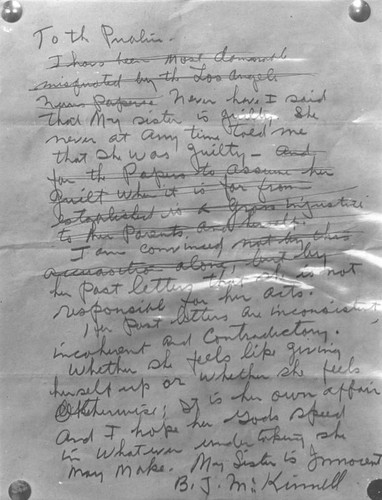 To th Public.
I have been most
misquoted by the Los Angeles
News Papers. Never have I said
that my sister is guilty. She
never at any time told me
that she was guilty - and
for the Papers to assume her
guilt when it is far from
established is a gross injustice
to her Parents and her
I am convinced not by this
accusation along, but by
her past letters that she is not
responsible for her acts.
Her past letters are inconsistent,
incoherent and contradictory.
Whether she feels like giving
herself up or whether she feels
otherwise, it is her own affair
and I hope her Gods speed
in whatever under taking she
may make. My Sister is Innocent
B. J. McKinnell